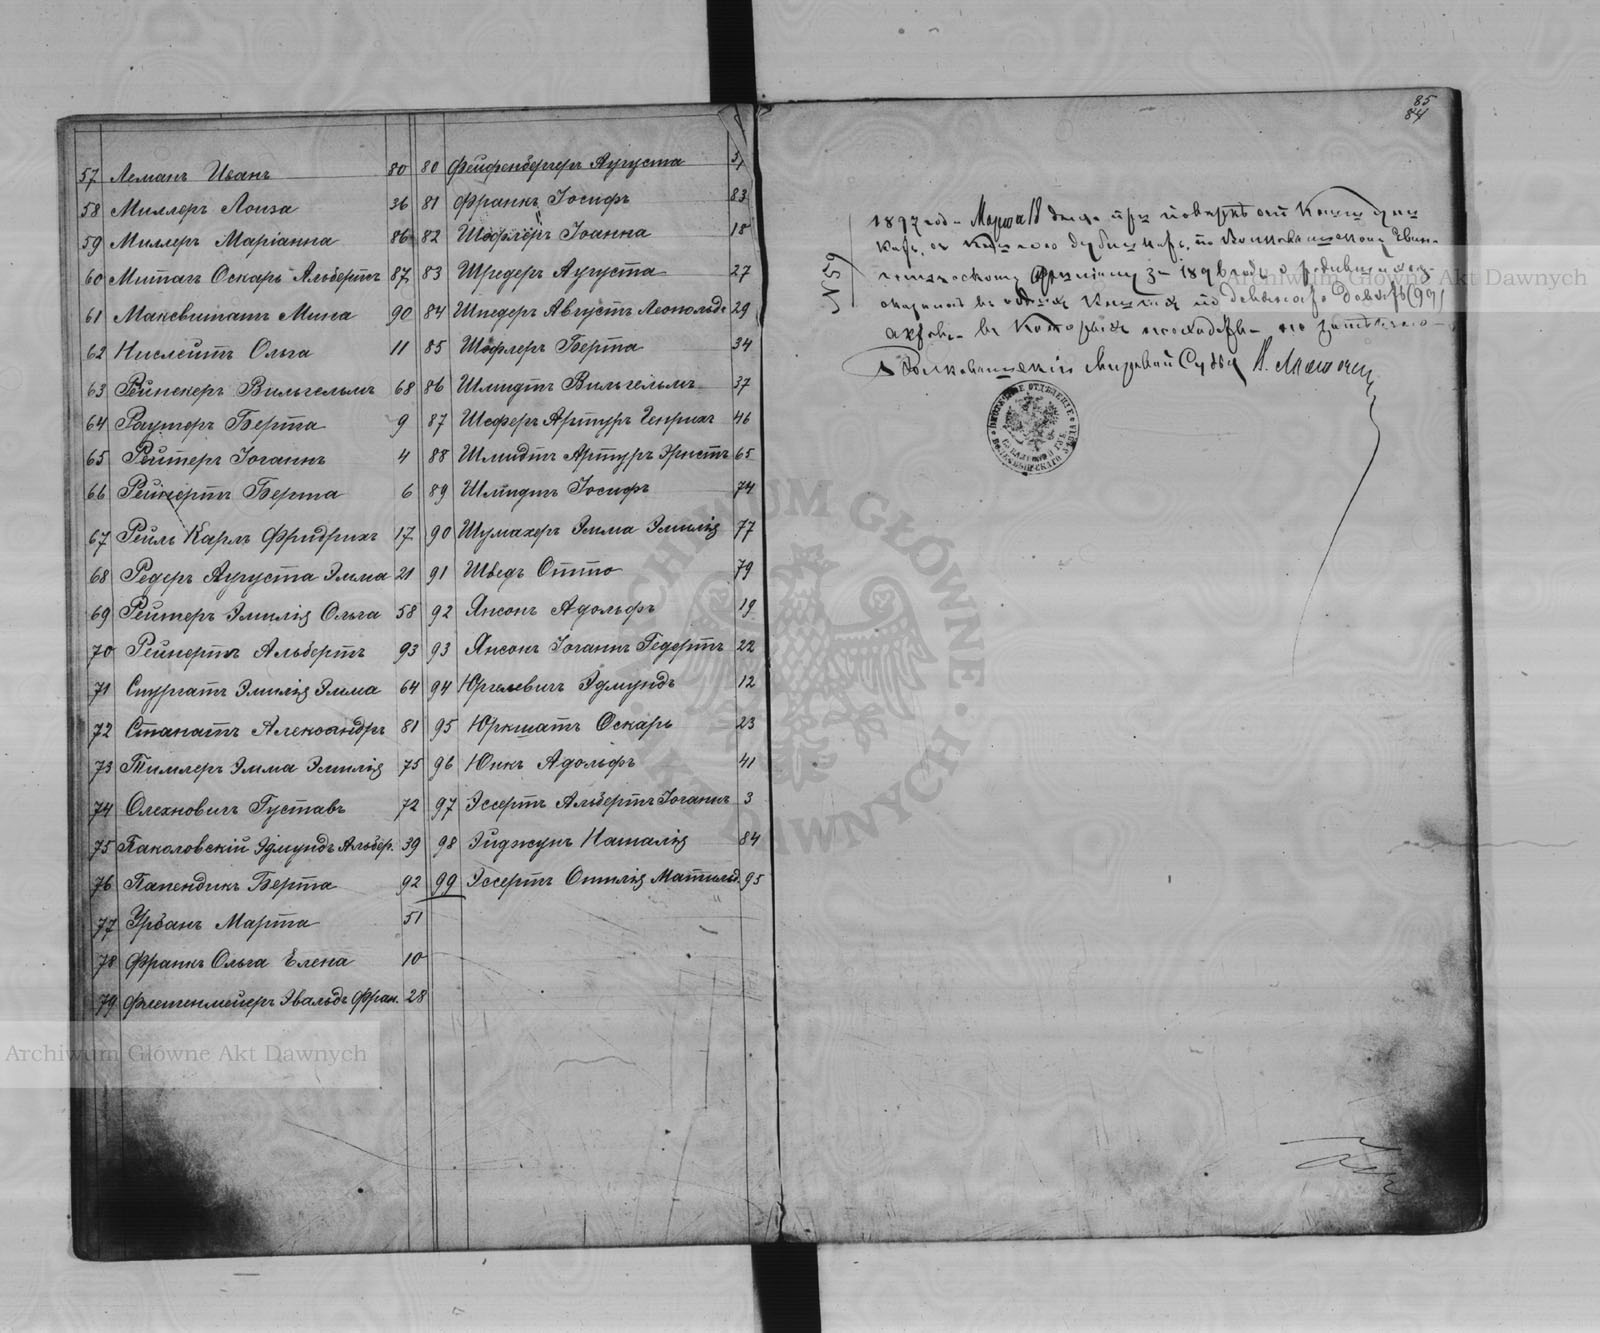 57 Леманъ Иванъ 80
58 Миллеръ Лоиза 36
59 Миллеръ Маріанна 86
60 Миттагъ Оскаръ Альбертъ 87
61 Максвитатъ Мина 90
62 Нислейтъ Ольга 11
63 Рейнекеръ Вильгельмъ 68
64 Раутеръ Берта 9
65 Рейтеръ Іоганнъ 4
66 Рейнертъ Берта 6
67 Рейль Карлъ Фридрихъ 17
68 Редеръ Аугуста Эмма 21
69 Рейтеръ Эмилія Ольга 58
70 Рейнертъ Альбертъ 93
71 Спургатъ Эмилія Эмма 64
72 Станатъ Александръ 81
73 Тиммлеръ Эмма Эмилія 75
74 Олехновичъ Густавъ 72
75 Паколовскій Эдмундъ Альбер. 39
76 Папендикъ Берта 92
77 Урбанъ Марта 51
78 Франкъ Ольга Елена 10
79 Эвальдъ Фран. 28
80 Фейфенбергеръ Аугуста 31
81 Франкъ Іосифъ 83
82 Шефлеръ Іоанна 18
83 Шредеръ Аугуста 27
84 Шнедеръ Августъ Леопольдъ 29
85 Шефлеръ Берта 34
86 Шмидтъ Вильгельмъ 37
87 Шеферъ Артуръ Генрихъ 46
88 Шмидтъ Артуръ Христ. 65
89 Шмидтъ Іосифъ 74
90 Шумахеръ Эмма Эмилія 77
91 Шведъ Отто 79
92 Янсонъ Адольфъ 19
93 Янсонъ Іоганнъ Гедертъ 22
94 Юргелевичъ Эдмундъ 12
95 Юркшатъ Оскаръ 23
96 Юнкъ Адольфъ 41
97 Эссертъ Альбертъ Іоганнъ 3
98 Эйджунъ Наталія 84
99 Эссертъ Отилія Матильд. 95
85
84
№ 59
1897 год. Марта 18 дня при
по Волковышскому Еван-
за 1896 годъ о
девяносто девять (99)
актовъ въ которыхъ
Волковышскій Мировой Судья
ARCHIWUM GŁÓWNE AKT DAWNYCH
Archiwum Główne Akt Dawnych
Archiwum Główne Akt Dawnych